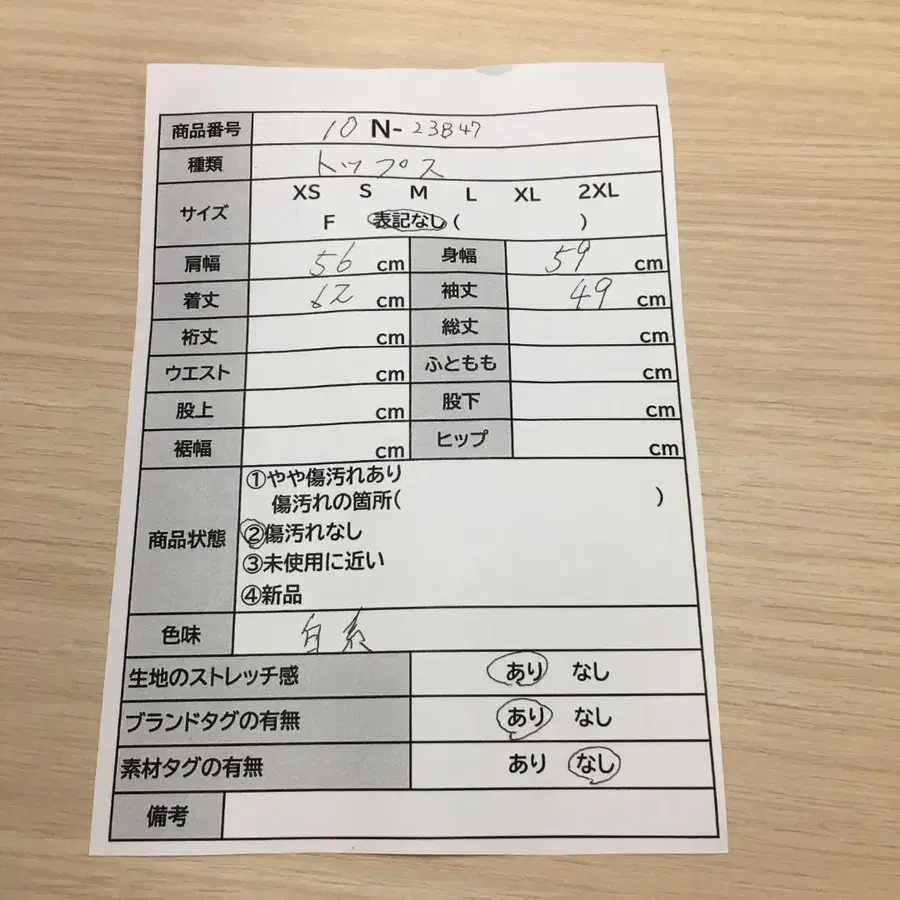 商品番号 10 N-23847
種類 トップス
サイズ XS S M L XL 2XL
F 表記なし ( )
肩幅 56 cm 身幅 59 cm
着丈 62 cm 袖丈 49 cm
裄丈 cm 総丈 cm
ウエスト cm ふともも cm
股上 cm 股下 cm
裾幅 cm ヒップ cm
①やや傷汚れあり
傷汚れの箇所( )
商品状態 ②傷汚れなし
③未使用に近い
④新品
色味 白系
生地のストレッチ感 あり なし
ブランドタグの有無 あり なし
素材タグの有無 あり なし
備考